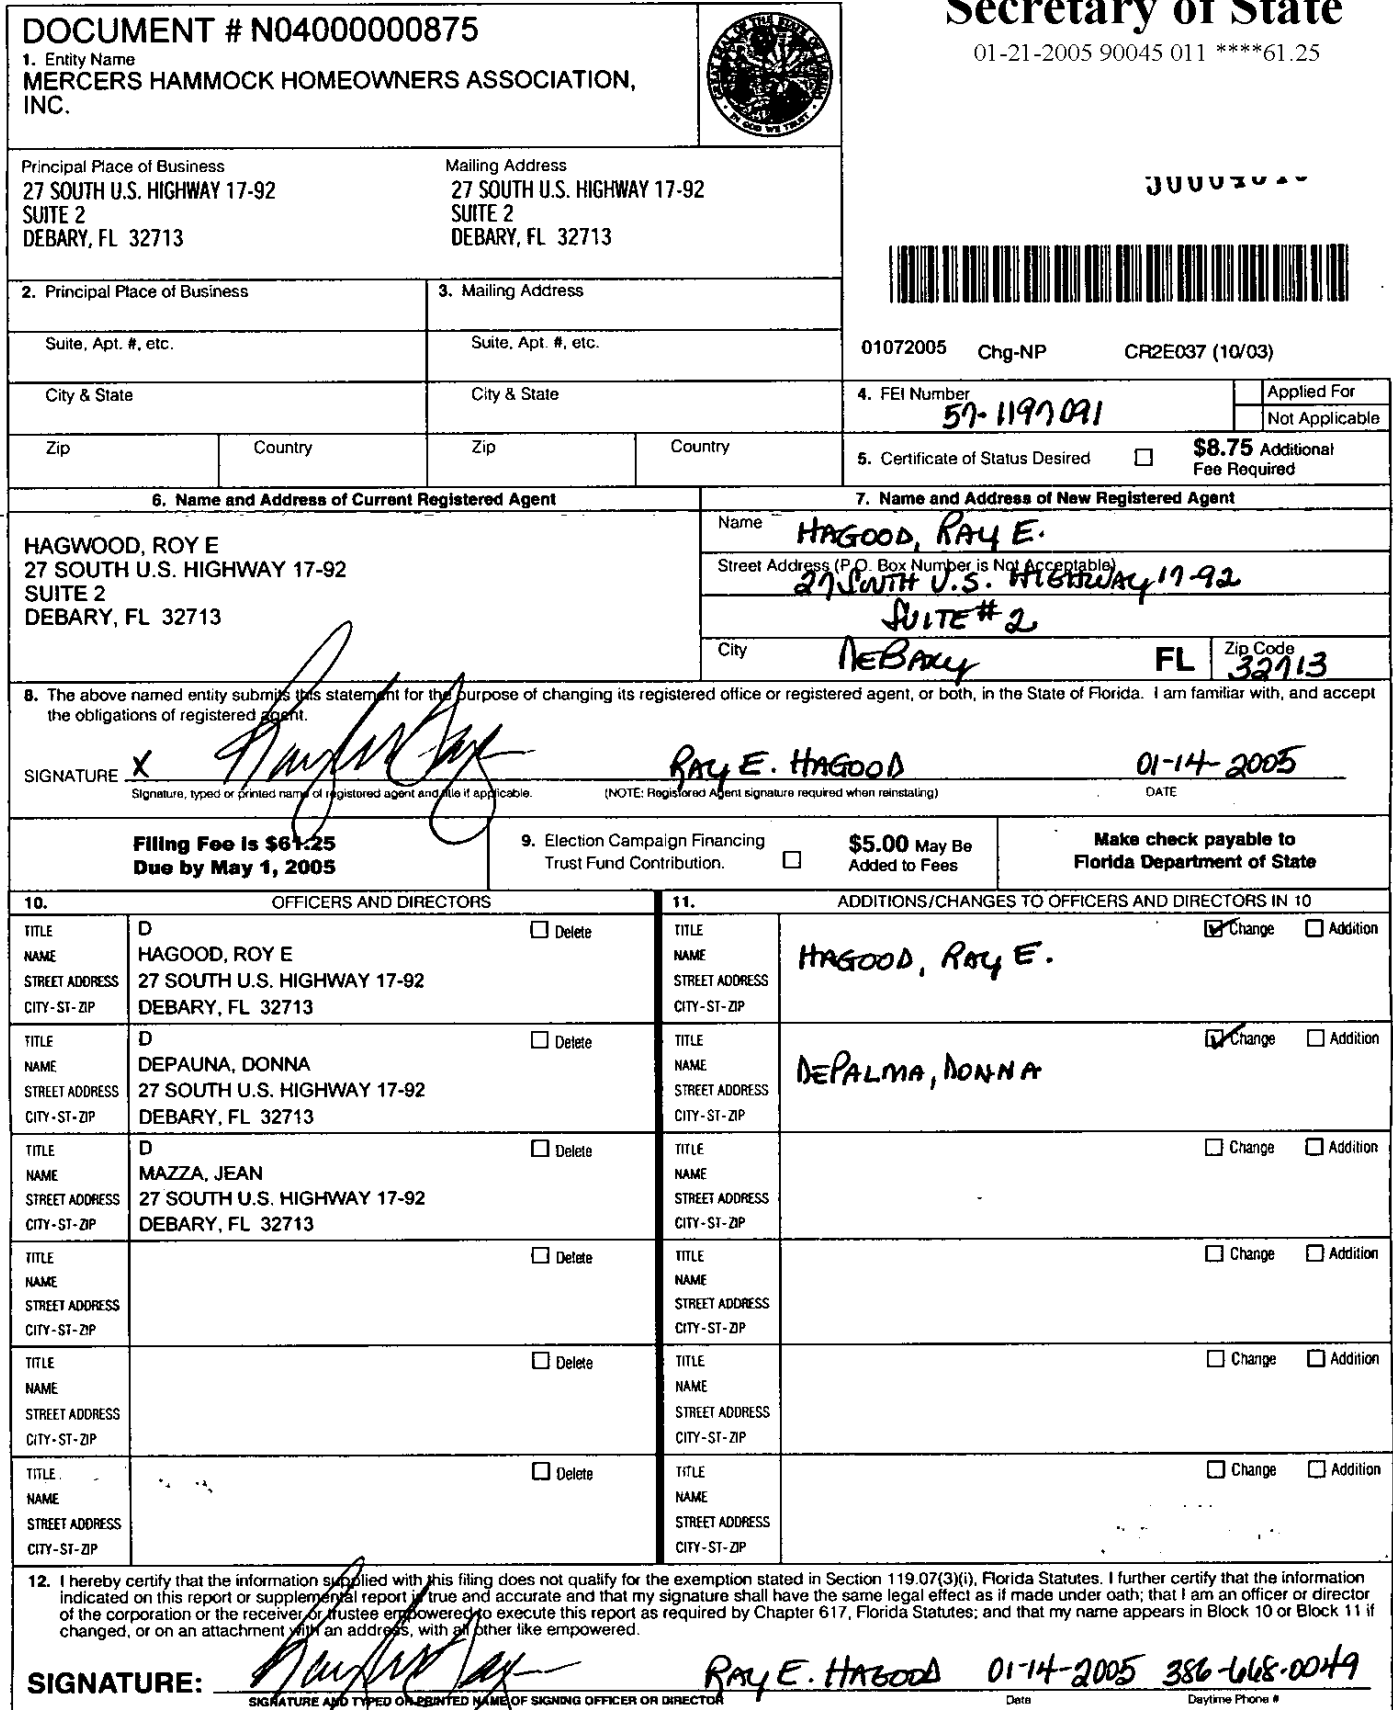 Secretary of State
01-21-2005 90045 011 ****61.25
DOCUMENT # N04000000875
1. Entity Name
MERCERS HAMMOCK HOMEOWNERS ASSOCIATION,
INC.
Principal Place of Business
27 SOUTH U.S. HIGHWAY 17-92
SUITE 2
DEBARY, FL 32713
Mailing Address
27 SOUTH U.S. HIGHWAY 17-92
SUITE 2
DEBARY, FL 32713
2. Principal Place of Business
3. Mailing Address
Suite, Apt. #, etc.
Suite, Apt. #, etc.
City & State
City & State
Zip Country
Zip Country
01072005 Chg-NP CR2E037 (10/03)
4. FEI Number
57-1197091
Applied For
Not Applicable
5. Certificate of Status Desired
$8.75 Additional
Fee Required
6. Name and Address of Current Registered Agent
HAGWOOD, ROY E
27 SOUTH U.S. HIGHWAY 17-92
SUITE 2
DEBARY, FL 32713
7. Name and Address of New Registered Agent
Name HAGOOD, RAY E.
Street Address (P.O. Box Number is Not Acceptable)
27 SOUTH U.S. HIGHWAY 17-92
SUITE # 2
City DEBARY FL Zip Code 32713
8. The above named entity submits this statement for the purpose of changing its registered office or registered agent, or both, in the State of Florida. I am familiar with, and accept
the obligations of registered agent.
SIGNATURE X RAY E. HAGOOD 01-14-2005
Signature, typed or printed name of registered agent and title if applicable. (NOTE: Registered Agent signature required when reinstating) DATE
Filing Fee is $61.25
Due by May 1, 2005
9. Election Campaign Financing
Trust Fund Contribution.
$5.00 May Be
Added to Fees
Make check payable to
Florida Department of State
10. OFFICERS AND DIRECTORS
11. ADDITIONS/CHANGES TO OFFICERS AND DIRECTORS IN 10
TITLE D Delete
NAME HAGOOD, ROY E
STREET ADDRESS 27 SOUTH U.S. HIGHWAY 17-92
CITY-ST-ZIP DEBARY, FL 32713
TITLE Change Addition
NAME HAGOOD, RAY E.
STREET ADDRESS
CITY-ST-ZIP
TITLE D Delete
NAME DEPAUNA, DONNA
STREET ADDRESS 27 SOUTH U.S. HIGHWAY 17-92
CITY-ST-ZIP DEBARY, FL 32713
TITLE Change Addition
NAME DEPALMA, DONNA
STREET ADDRESS
CITY-ST-ZIP
TITLE D Delete
NAME MAZZA, JEAN
STREET ADDRESS 27 SOUTH U.S. HIGHWAY 17-92
CITY-ST-ZIP DEBARY, FL 32713
TITLE Change Addition
NAME
STREET ADDRESS
CITY-ST-ZIP
TITLE Delete
NAME
STREET ADDRESS
CITY-ST-ZIP
TITLE Change Addition
NAME
STREET ADDRESS
CITY-ST-ZIP
TITLE Delete
NAME
STREET ADDRESS
CITY-ST-ZIP
TITLE Change Addition
NAME
STREET ADDRESS
CITY-ST-ZIP
TITLE Delete
NAME
STREET ADDRESS
CITY-ST-ZIP
TITLE Change Addition
NAME
STREET ADDRESS
CITY-ST-ZIP
12. I hereby certify that the information supplied with this filing does not qualify for the exemption stated in Section 119.07(3)(i), Florida Statutes. I further certify that the information
indicated on this report or supplemental report is true and accurate and that my signature shall have the same legal effect as if made under oath; that I am an officer or director
of the corporation or the receiver or trustee empowered to execute this report as required by Chapter 617, Florida Statutes; and that my name appears in Block 10 or Block 11 if
changed, or on an attachment with an address, with all other like empowered.
SIGNATURE: RAY E. HAGOOD 01-14-2005 386-668-0049
SIGNATURE AND TYPED OR PRINTED NAME OF SIGNING OFFICER OR DIRECTOR Date Daytime Phone #